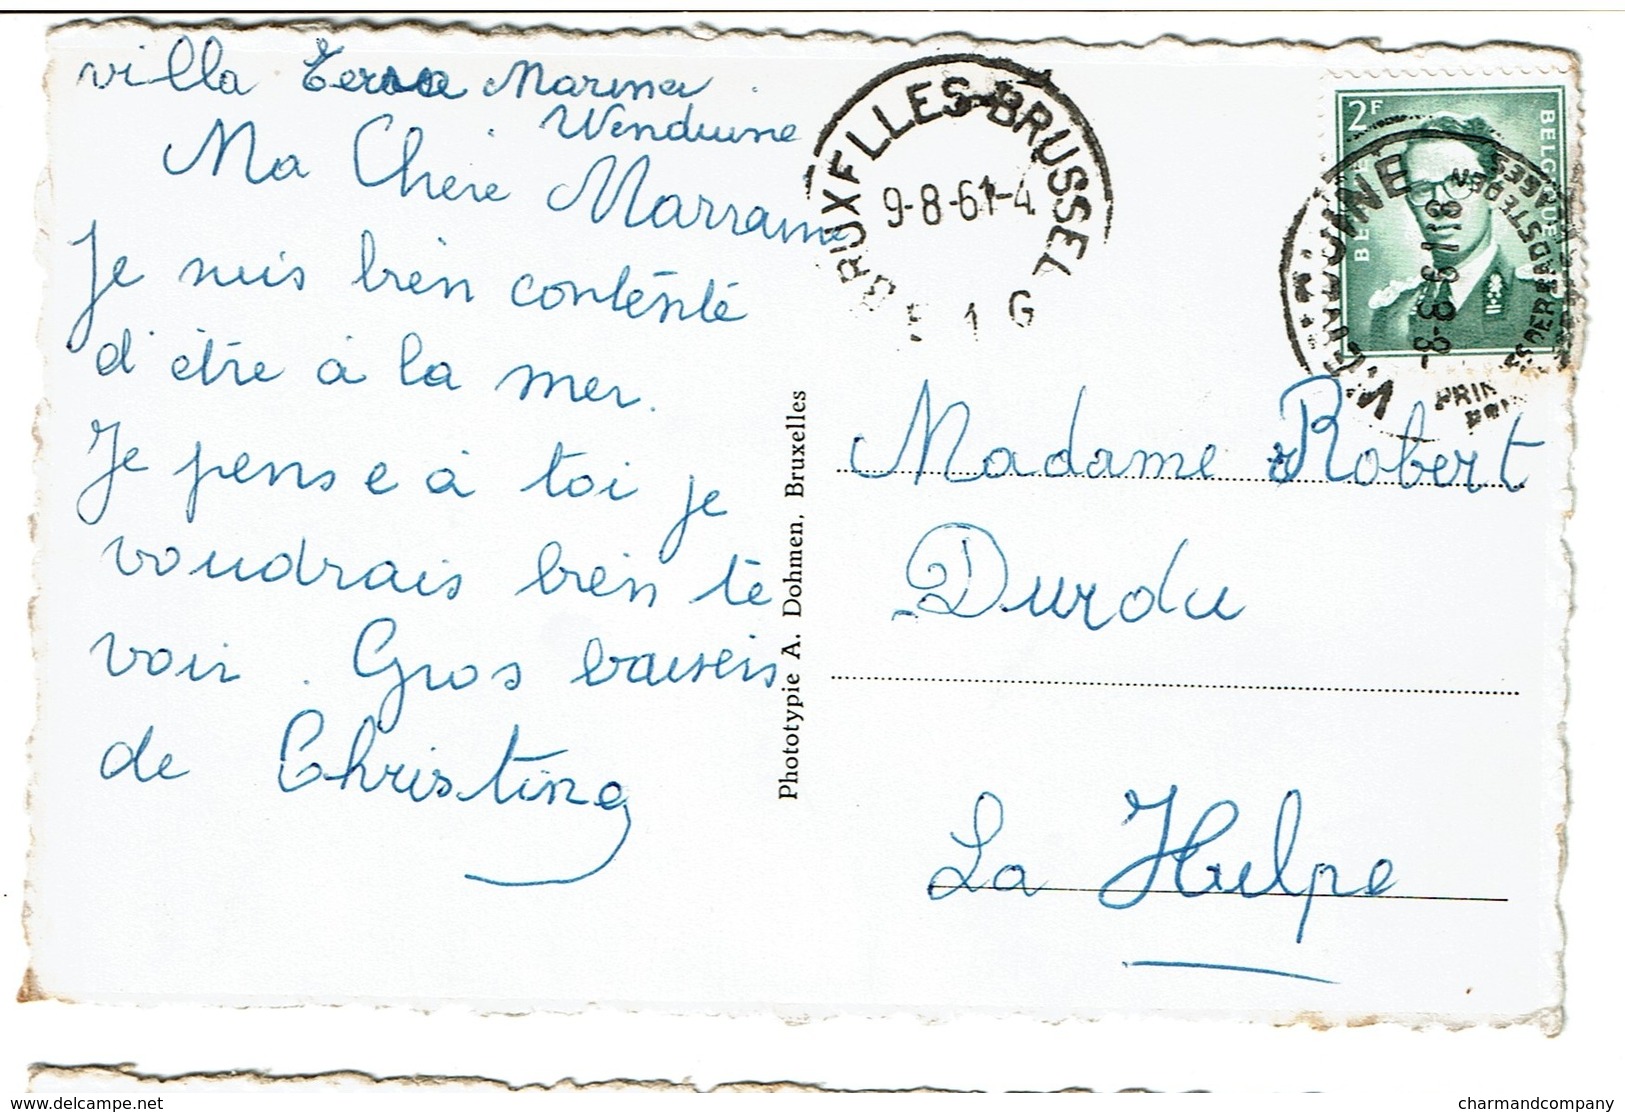 villa Terra Marina
Wenduine
Ma Chère Marraine
Je suis bien contente
d'être à la mer.
Je pense à toi je
voudrais bien te
voir. Gros baisers
de Christine
Phototypie A. Dohmen, Bruxelles
BRUXELLES-BRUSSEL
9-8-61-4
1 G
2F
BELGIQUE
Madame Robert
Durdu
La Hulpe
www.delcampe.net
charmandcompany